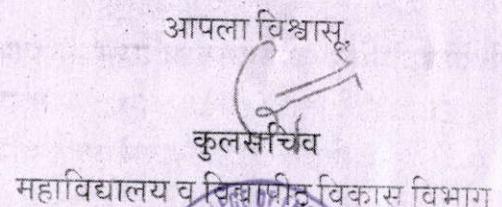 आपला विश्वासू,
कुलसचिव
महाविद्यालय व विद्यापीठ विकास विभाग